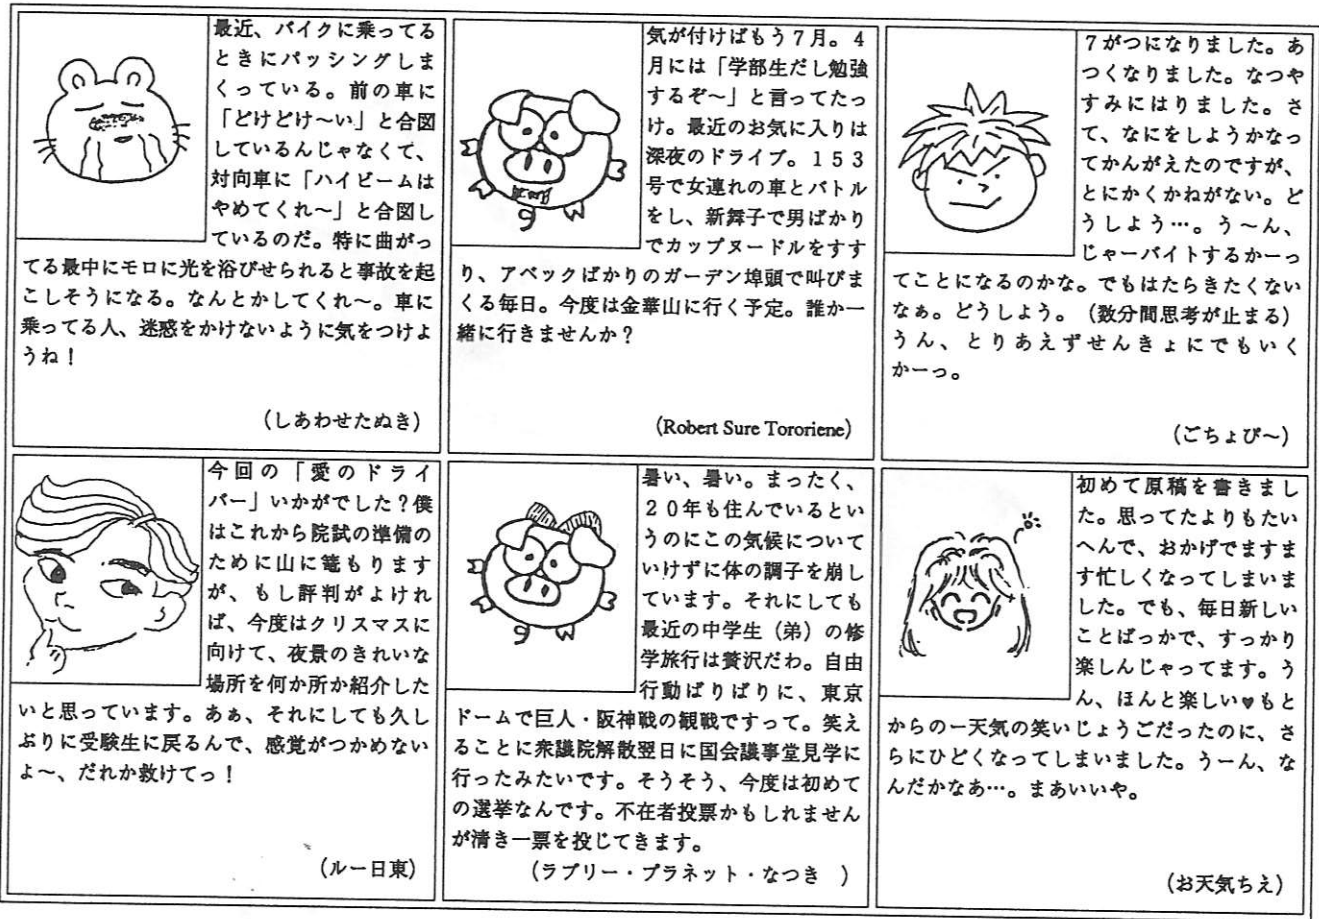 最近、バイクに乗ってる
ときにパッシングしま
くっている。前の車に
「どけどけ～い」と合図
しているんじゃなくて、
対向車に「ハイビームは
やめてくれ～」と合図し
ているのだ。特に曲がっ
てる最中にモロに光を浴びせられると事故を起
こしそうになる。なんとかしてくれ～。車に
乗ってる人、迷惑をかけないように気をつけよ
うね！
（しあわせたぬき）
気が付けばもう７月。４
月には「学部生だし勉強
するぞ～」と言ってたっ
け。最近のお気に入りは
深夜のドライブ。１５３
号で女連れの車とバトル
をし、新舞子で男ばかり
でカップヌードルをすす
り、アベックばかりのガーデン埠頭で叫びま
くる毎日。今度は金華山に行く予定。誰か一
緒に行きませんか？
（Robert Sure Tororiene）
７がつになりました。あ
つくなりました。なつや
すみにはりました。さ
て、なにをしようかなっ
てかんがえたのですが、
とにかくかねがない。ど
うしよう…。う～ん、
じゃーバイトするかーっ
てことになるのかな。でもはたらきたくない
なぁ。どうしよう。（数分間思考が止まる）
うん、とりあえずせんきょにでもいく
かーっ。
（ごちょぴ～）
今回の「愛のドライ
バー」いかがでした？僕
はこれから院試の準備の
ために山に篭もります
が、もし評判がよけれ
ば、今度はクリスマスに
向けて、夜景のきれいな
場所を何か所か紹介した
いと思っています。あぁ、それにしても久し
ぶりに受験生に戻るんで、感覚がつかめない
よ～、だれか救けてっ！
（ルー日東）
暑い、暑い。まったく、
２０年も住んでいるとい
うのにこの気候について
いけずに体の調子を崩し
ています。それにしても
最近の中学生（弟）の修
学旅行は贅沢だわ。自由
行動ばりばりに、東京
ドームで巨人・阪神戦の観戦ですって。笑え
ることに衆議院解散翌日に国会議事堂見学に
行ったみたいです。そうそう、今度は初めて
の選挙なんです。不在者投票かもしれません
が清き一票を投じてきます。
（ラブリー・プラネット・なつき　）
初めて原稿を書きまし
た。思ってたよりもたい
へんで、おかげでますま
す忙しくなってしまいま
した。でも、毎日新しい
ことばっかで、すっかり
楽しんじゃってます。う
ん、ほんと楽しい♥もと
からのー天気の笑いじょうごだったのに、さ
らにひどくなってしまいました。うーん、な
んだかなあ…。まあいいや。
（お天気ちえ）